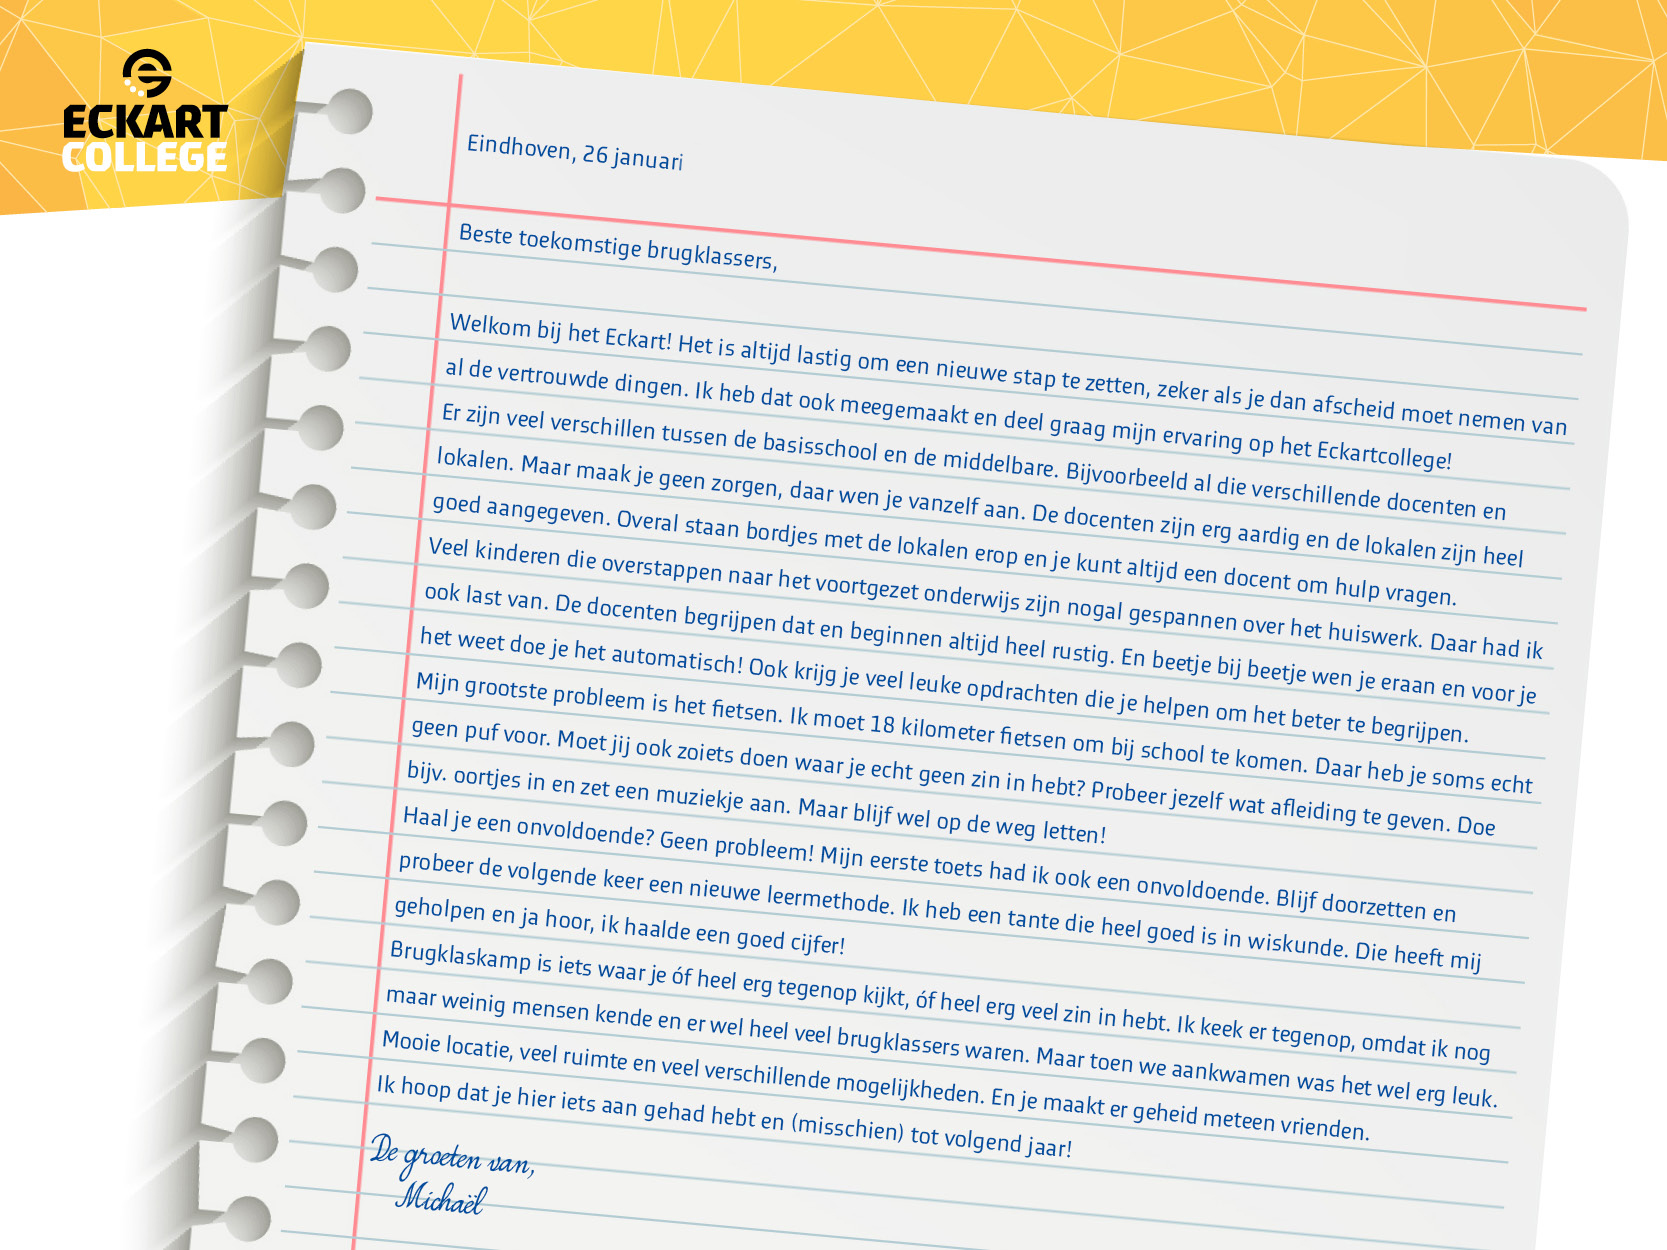 ECKART
COLLEGE
Eindhoven, 26 januari
Beste toekomstige brugklassers,
Welkom bij het Eckart! Het is altijd lastig om een nieuwe stap te zetten, zeker als je dan afscheid moet nemen van
al de vertrouwde dingen. Ik heb dat ook meegemaakt en deel graag mijn ervaring op het Eckartcollege!
Er zijn veel verschillen tussen de basisschool en de middelbare. Bijvoorbeeld al die verschillende docenten en
lokalen. Maar maak je geen zorgen, daar wen je vanzelf aan. De docenten zijn erg aardig en de lokalen zijn heel
goed aangegeven. Overal staan bordjes met de lokalen erop en je kunt altijd een docent om hulp vragen.
Veel kinderen die overstappen naar het voortgezet onderwijs zijn nogal gespannen over het huiswerk. Daar had ik
ook last van. De docenten begrijpen dat en beginnen altijd heel rustig. En beetje bij beetje wen je eraan en voor je
het weet doe je het automatisch! Ook krijg je veel leuke opdrachten die je helpen om het beter te begrijpen.
Mijn grootste probleem is het fietsen. Ik moet 18 kilometer fietsen om bij school te komen. Daar heb je soms echt
geen puf voor. Moet jij ook zoiets doen waar je echt geen zin in hebt? Probeer jezelf wat afleiding te geven. Doe
bijv. oortjes in en zet een muziekje aan. Maar blijf wel op de weg letten!
Haal je een onvoldoende? Geen probleem! Mijn eerste toets had ik ook een onvoldoende. Blijf doorzetten en
probeer de volgende keer een nieuwe leermethode. Ik heb een tante die heel goed is in wiskunde. Die heeft mij
geholpen en ja hoor, ik haalde een goed cijfer!
Brugklaskamp is iets waar je óf heel erg tegenop kijkt, óf heel erg veel zin in hebt. Ik keek er tegenop, omdat ik nog
maar weinig mensen kende en er wel heel veel brugklassers waren. Maar toen we aankwamen was het wel erg leuk.
Mooie locatie, veel ruimte en veel verschillende mogelijkheden. En je maakt er geheid meteen vrienden.
Ik hoop dat je hier iets aan gehad hebt en (misschien) tot volgend jaar!
De groeten van,
Michaël